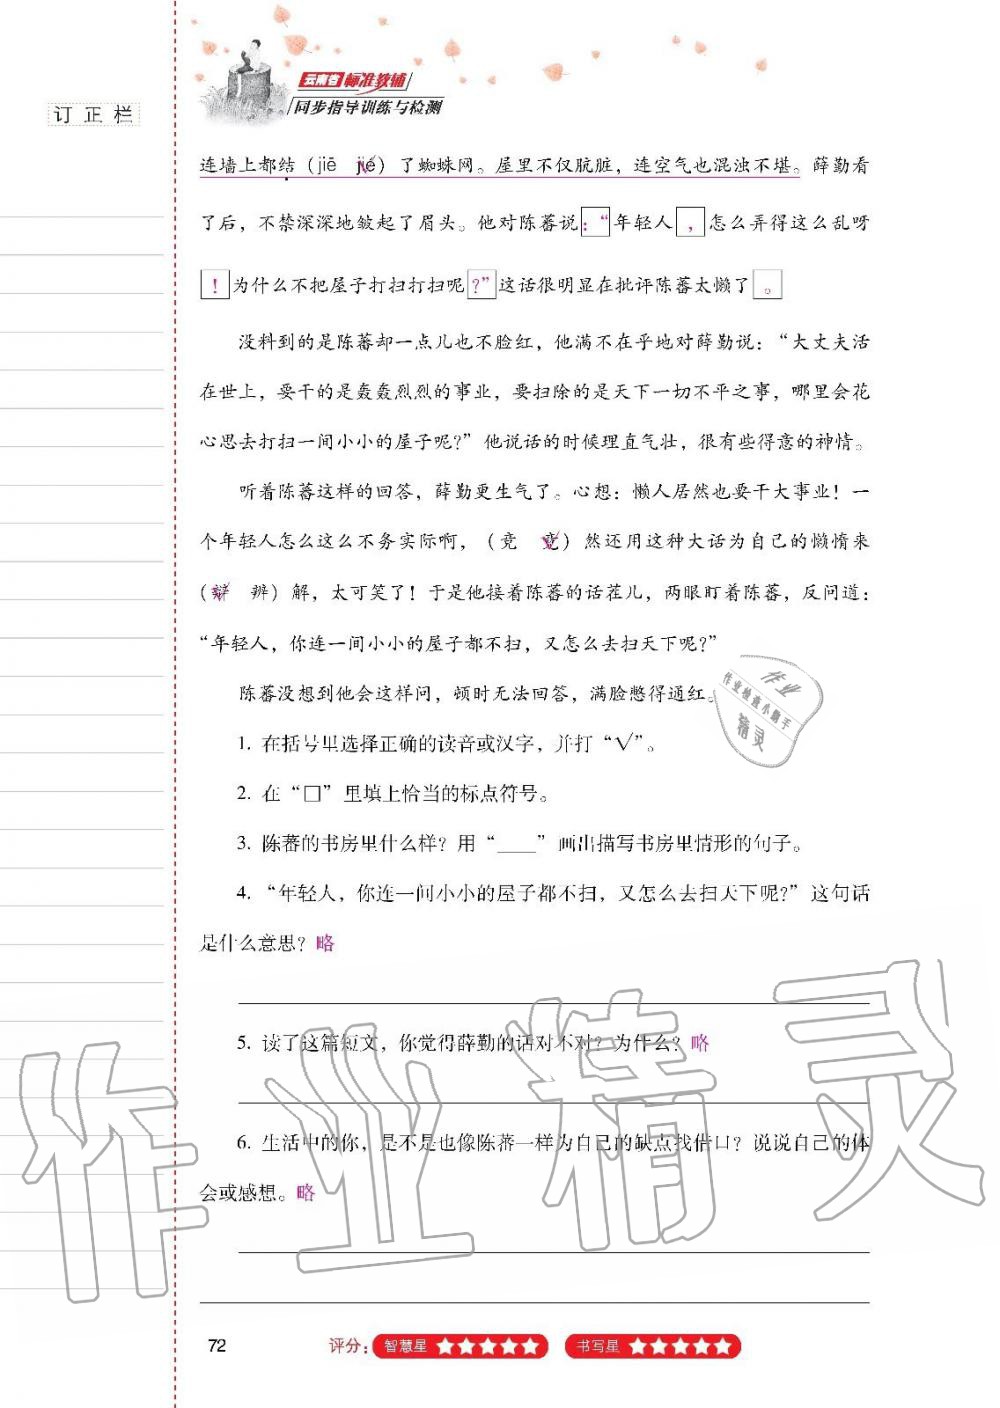 云南省标准教辅
同步指导训练与检测
订正栏
连墙上都结（jiē　jié）了蜘蛛网。屋里不仅肮脏，连空气也混浊不堪。薛勤看
了后，不禁深深地皱起了眉头。他对陈蕃说：“年轻人，怎么弄得这么乱呀
！为什么不把屋子打扫打扫呢？”这话很明显在批评陈蕃太懒了。
没料到的是陈蕃却一点儿也不脸红，他满不在乎地对薛勤说：“大丈夫活
在世上，要干的是轰轰烈烈的事业，要扫除的是天下一切不平之事，哪里会花
心思去打扫一间小小的屋子呢？”他说话的时候理直气壮，很有些得意的神情。
听着陈蕃这样的回答，薛勤更生气了。心想：懒人居然也要干大事业！一
个年轻人怎么这么不务实际啊，（竞　竟）然还用这种大话为自己的懒惰来
（辩　辨）解，太可笑了！于是他接着陈蕃的话茬儿，两眼盯着陈蕃，反问道：
“年轻人，你连一间小小的屋子都不扫，又怎么去扫天下呢？”
陈蕃没想到他会这样问，顿时无法回答，满脸憋得通红。
1. 在括号里选择正确的读音或汉字，并打“√”。
2. 在“□”里填上恰当的标点符号。
3. 陈蕃的书房里什么样？用“____”画出描写书房里情形的句子。
4. “年轻人，你连一间小小的屋子都不扫，又怎么去扫天下呢？”这句话
是什么意思？略
5. 读了这篇短文，你觉得薛勤的话对不对？为什么？略
6. 生活中的你，是不是也像陈蕃一样为自己的缺点找借口？说说自己的体
会或感想。略
作业
作业检查小助手
精灵
作业精灵
72　评分：智慧星★★★★★　书写星★★★★★